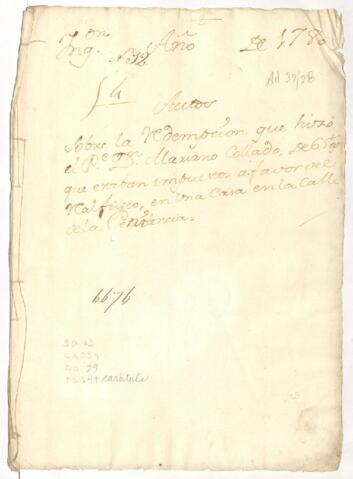 Ing.on Año De 1780
N.32
Ad 39/28
14
Autos
Sobre la redempcion que hizo
el P.e D.n Mariano Collado, de
que estaban impuestos a favor del
Real fisco, en una Casa en la Calle
de la Penitencia.
6676
caratula